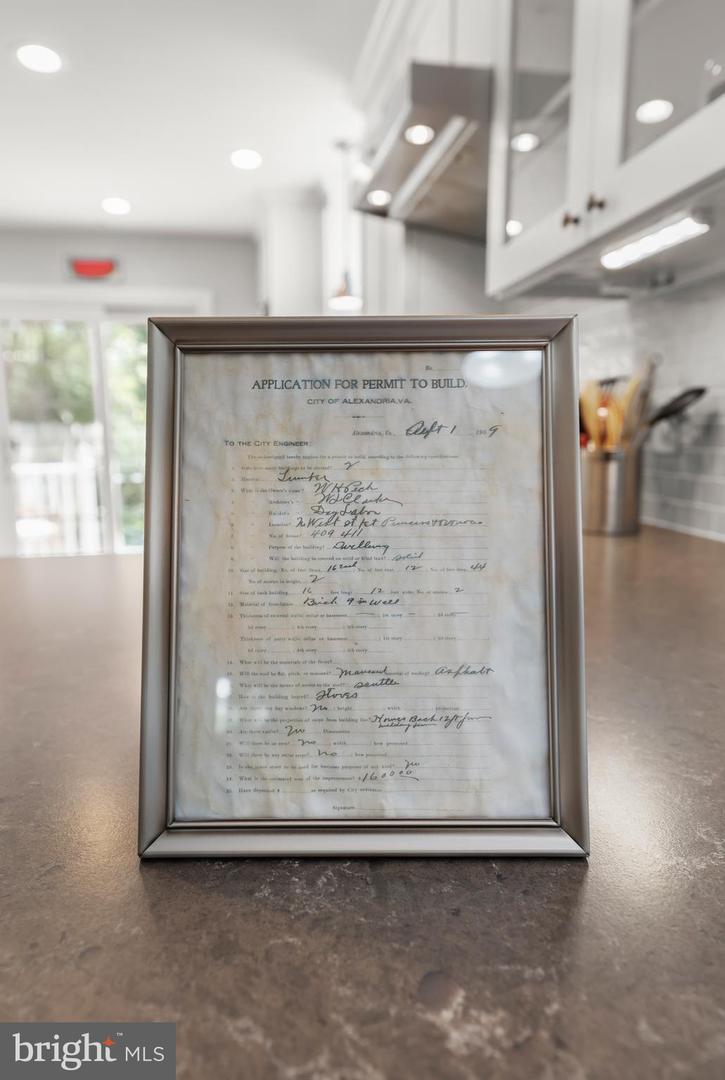 No.
APPLICATION FOR PERMIT TO BUILD.
CITY OF ALEXANDRIA, VA.
Alexandria, Va., Sept 1 1909
TO THE CITY ENGINEER:
The undersigned hereby applies for a permit to build, according to the following specifications:
1. State how many buildings to be erected? 2
2. Material Lumber
3. What is the Owner's name? W H Peck
Architect's " W L Clarke
Builder's " Day Labor
Location? N West St bet Princess &
No. of house? 409 411
Purpose of the building? Dwelling
Will the building be erected on solid or filled land? solid
10. Size of building, No. of feet front, 16 each; No. of feet rear, 12; No. of feet deep, 44
No. of stories in height, 2
11. Size of back building, 16 feet long; 12 feet wide; No. of stories 2
12. Material of foundation, Brick 9 in Wall
13. Thickness of external walls: cellar or basement ; 1st story ; 2d story
3d story ; 4th story ; 5th story
Thickness of party walls: cellar or basement ; 1st story ; 2d story
3d story ; 4th story ; 5th story
14. What will be the materials of the front?
15. Will the roof be flat, pitch, or mansard? Mansard material of roofing? Asphalt
What will be the means of access to the roof? Scuttle
How is the building heated? Stoves
Are there any bay windows? No ; height ; width ; projection
What will be the projection of steps from building line? House Back 12 ft from
building line
Are there vaults? No Dimensions
Will there be an area? No width ; how protected
Will there be any cellar steps? No ; how protected
23. Is the lower story to be used for business purposes of any kind? No
24. What is the estimated cost of the improvement? $1600 00
25. Have deposited $ as required by City ordinance.
Signature
bright™ MLS